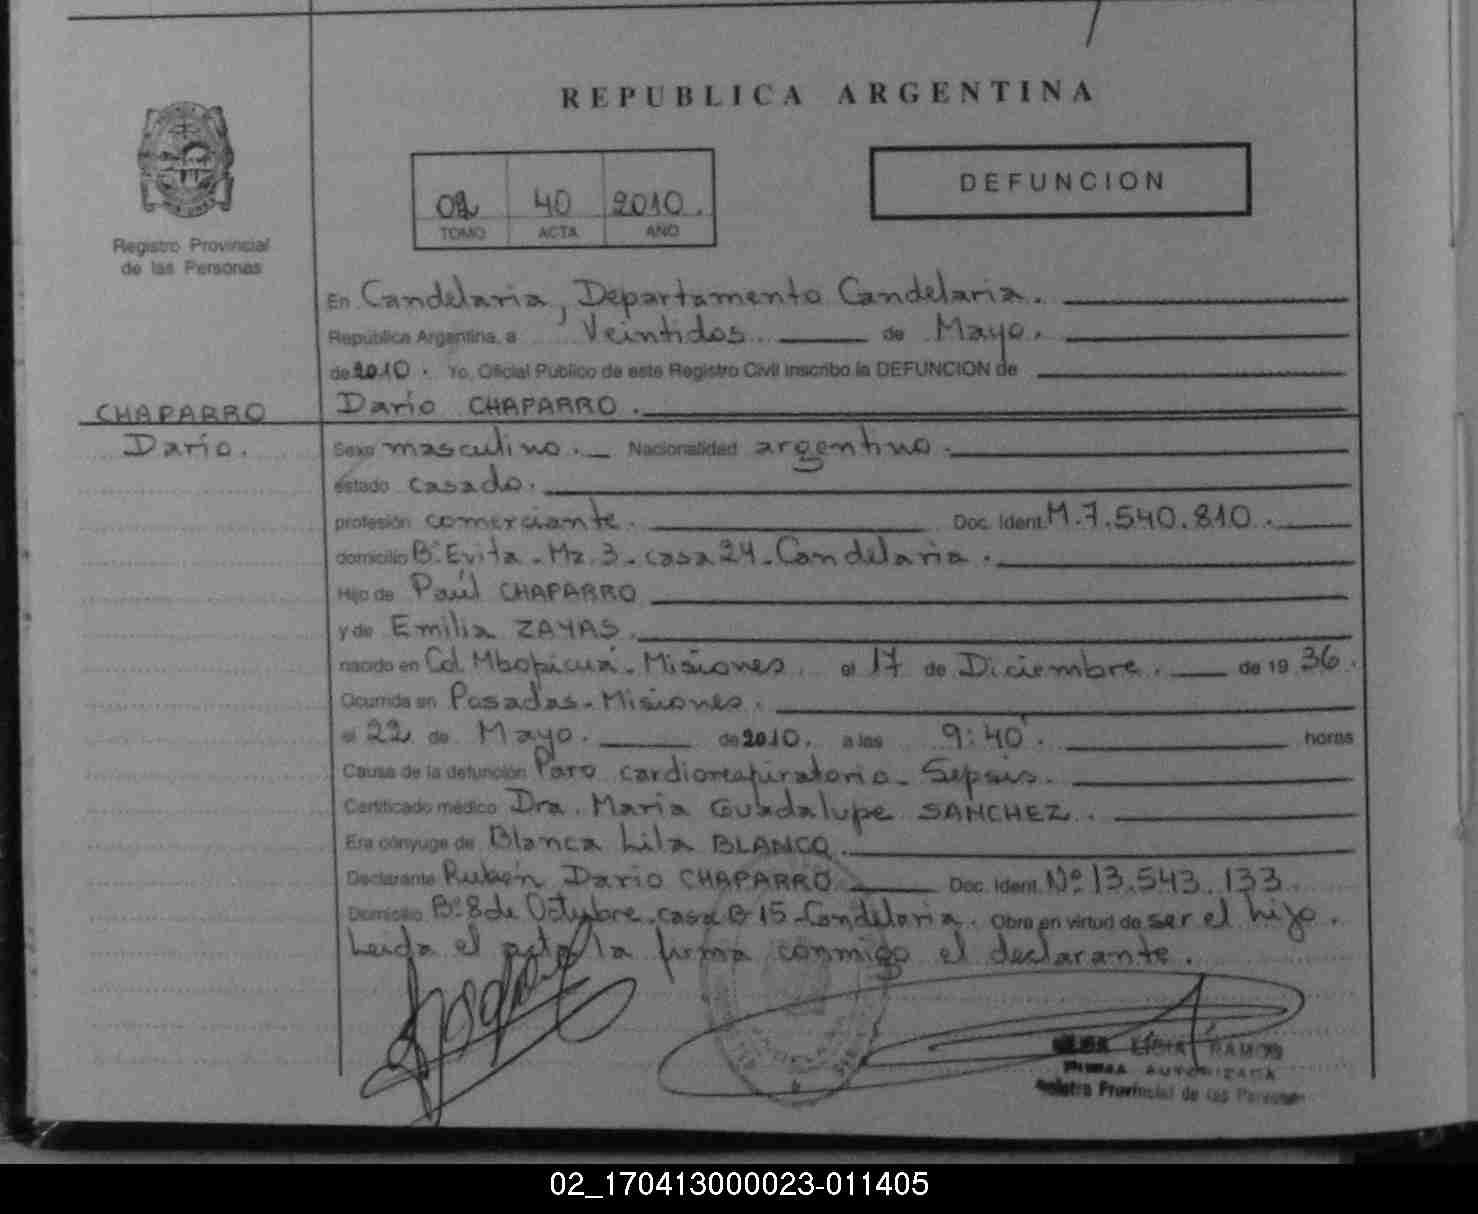 REPUBLICA ARGENTINA
DEFUNCION
02 40 2010.
TOMO ACTA AÑO
Registro Provincial
de las Personas
En Candelaria, Departamento Candelaria.
República Argentina, a Veintidos de Mayo.
de 2010. Yo, Oficial Público de este Registro Civil inscribo la DEFUNCION de
CHAPARRO
Darío CHAPARRO.
Darío.
Sexo masculino. Nacionalidad argentino.
estado casado.
profesión comerciante. Doc. Ident. M.7.540.810.
domicilio Bº Evita - Mz. 3 - casa 24 - Candelaria.
Hijo de Paúl CHAPARRO
y de Emilia ZAYAS.
nacido en Col. Mbopicuá - Misiones. el 17 de Diciembre. de 1936.
Ocurrida en Posadas - Misiones.
el 22 de Mayo. de 2010. a las 9:40'. horas
Causa de la defunción Paro cardiorespiratorio - Sepsis.
Certificado médico Dra. María Guadalupe SANCHEZ.
Era cónyuge de Blanca Lila BLANCO.
Declarante Rubén Darío CHAPARRO Doc. Ident. Nº 13.543.133
Domicilio Bº 8 de Octubre - casa B 15 - Candelaria. Obra en virtud de ser el hijo.
Leida el acta la firma conmigo el declarante.
LIDIA RAMOS
FIRMA AUTORIZADA
Registro Provincial de las Personas
02_170413000023-011405